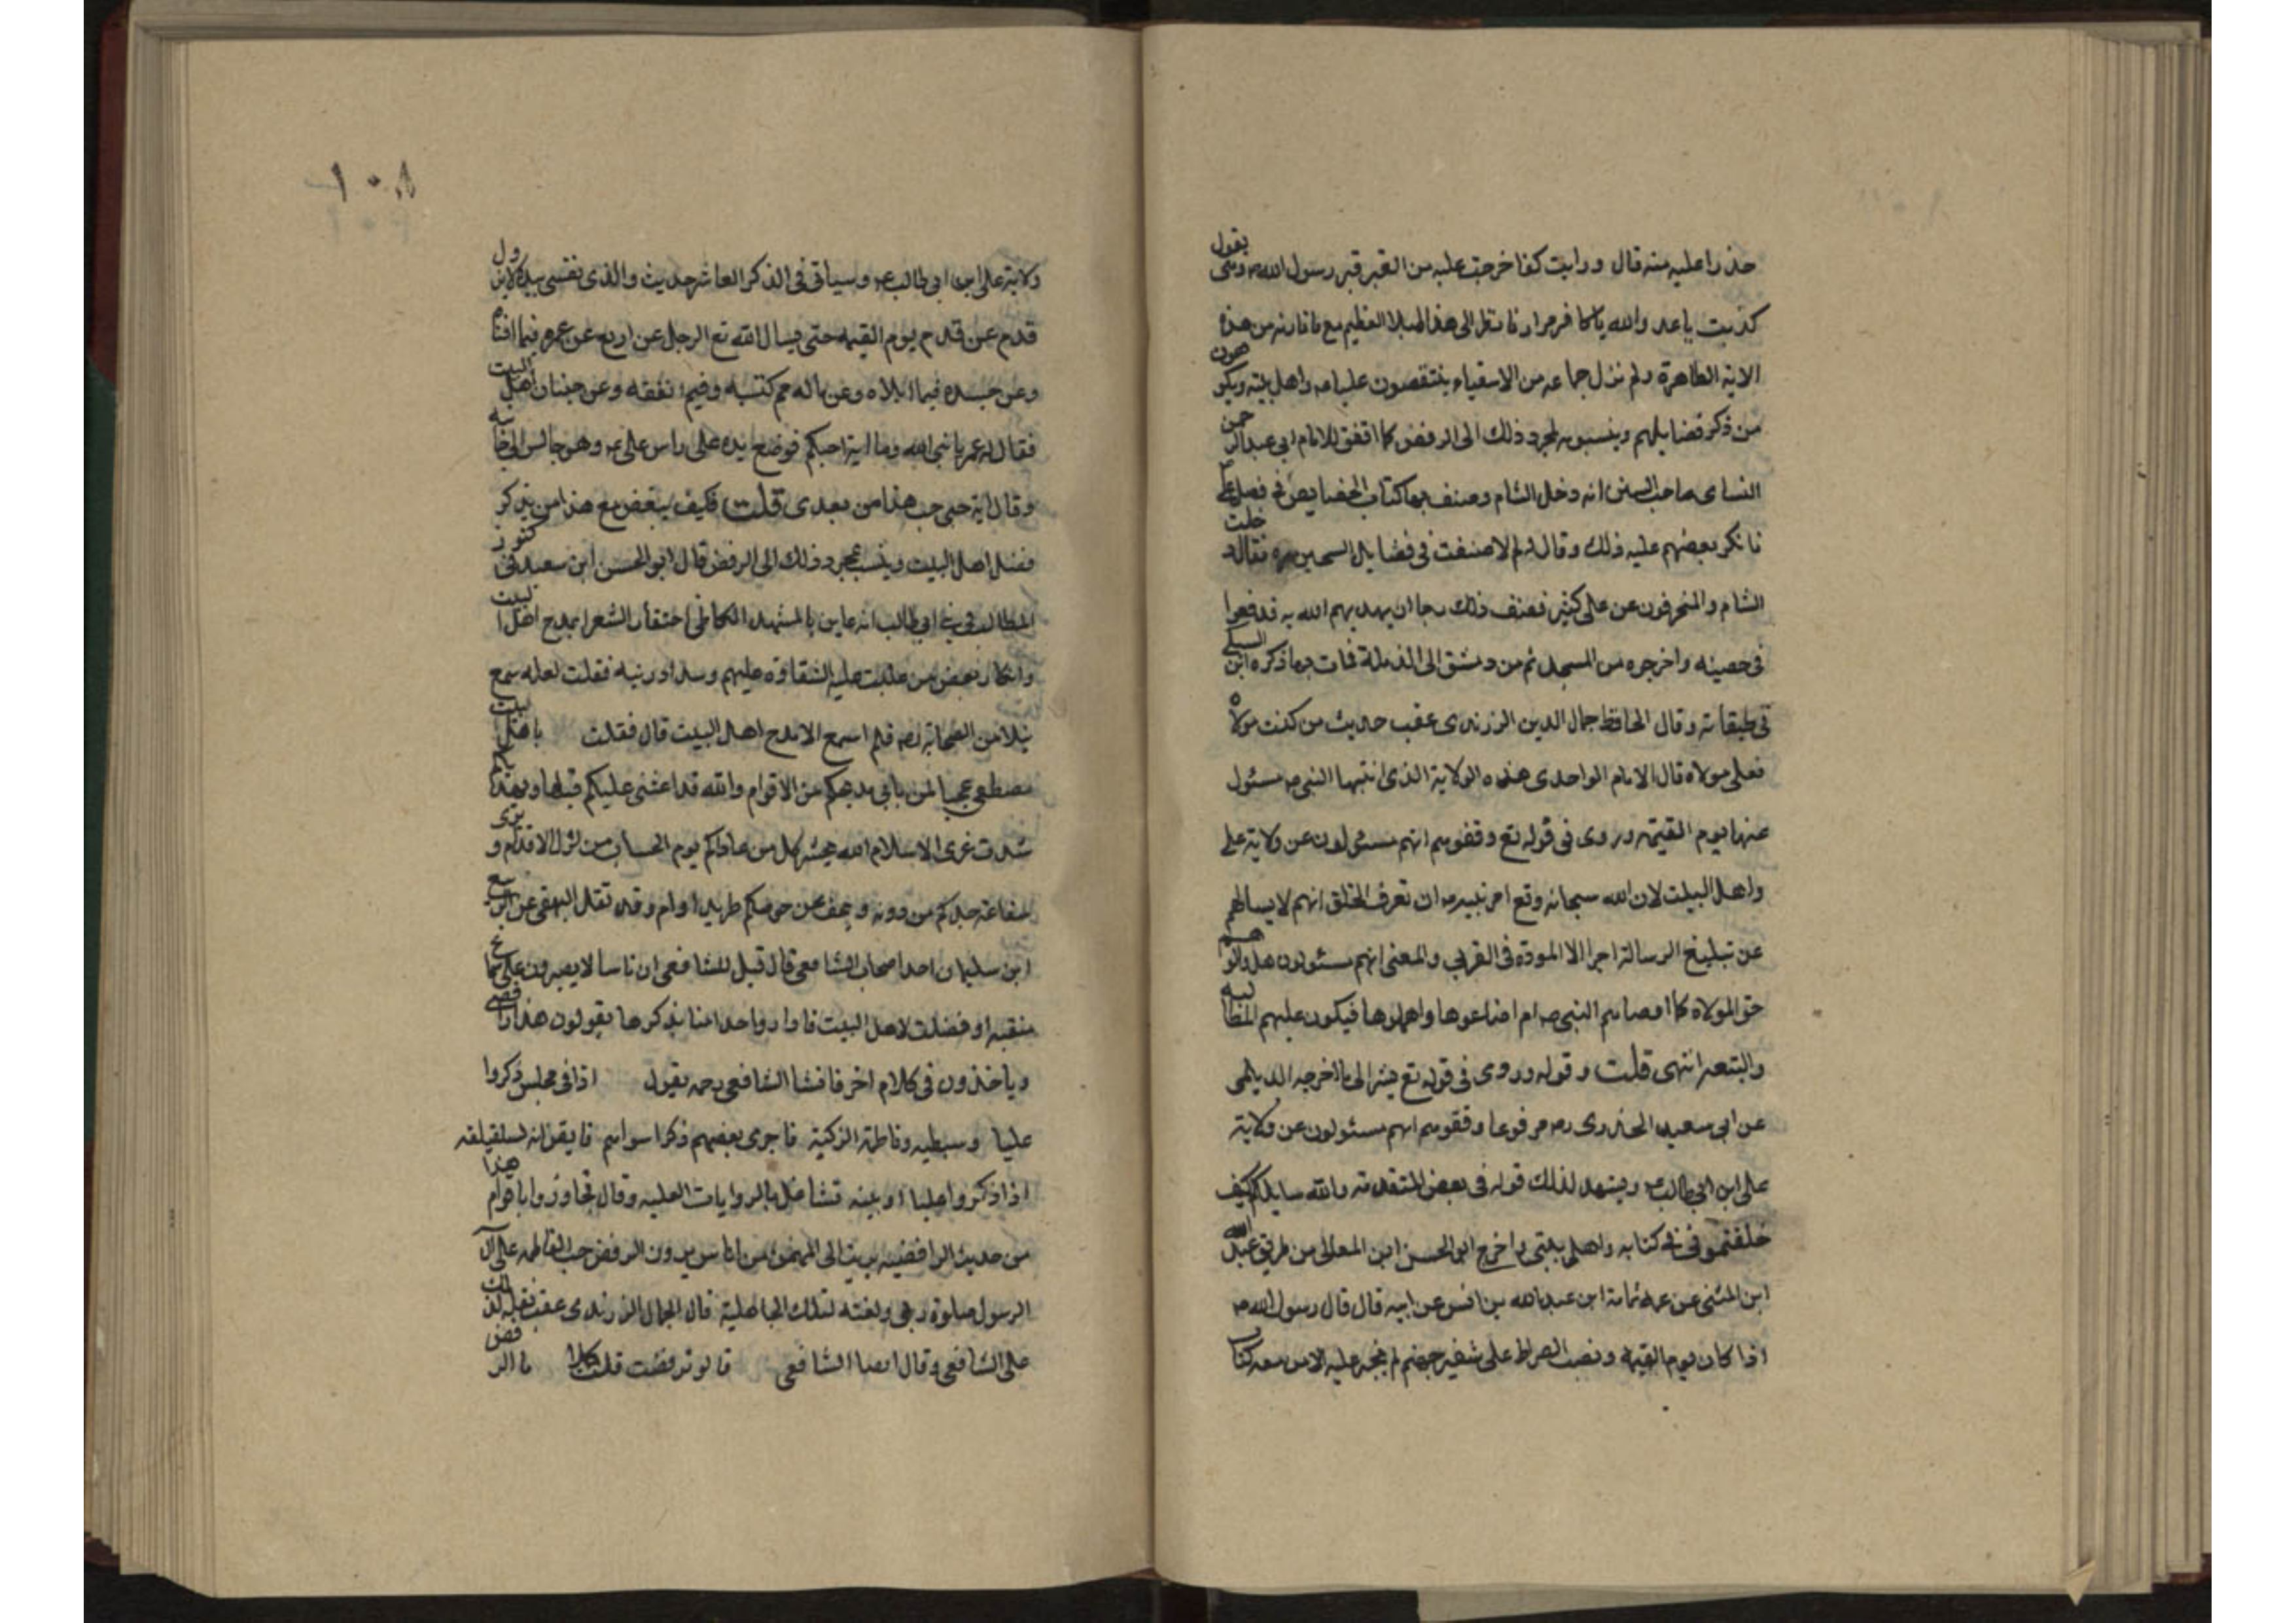 حذرا عليه منه قال ورايت كفا خرجت عليه من القبر قبر رسول الله ص وهى يقول
كذبت يا عدو والله يا كافر مرارا فانظر الى هذا البلاء العظيم مع ما قارنه من هذه
الاية الظاهرة ولم نزل جماعه من الاشقياء ينتقصون عليا عه واهل بيته ويكرهون
من ذكر فضايلهم وينسبونه لمجرد ذلك الى الرفض كما اتفق للامام ابى عبد الرحمن
النساى صاحب السنن انه دخل الشام وصنف بها كتاب الخصايص فى فضل على
فانكر بعضهم عليه ذلك وقال له لم لا صنفت فى فضايل الشيخين فقال دخلت
الشام والمنحرفون عن على كثير فصنف ذلك رجا ان يهديهم الله به فدفعوا
فى خصيته واخرجوه من المسجد ثم من دمشق الى الرملة فمات بها ذكره ابن السبكى
فى طبقاته وقال الحافظ جمال الدين الزرندى عقب حديث من كنت مولاه
فعلى مولاه قال الامام الواحدى هذه الولاية الذى اثبتها النبى ص مسئول
عنها يوم القيمة وروى فى قوله تع وقفوهم انهم مسئولون عن ولاية على
واهل البيت لان الله سبحانه وتع امر نبيه ص ان تعرف الخلق انهم لا يسالهم
عن تبليغ الرسالة اجرا الا المودة فى القربى والمعنى انهم مسئولون هل والوهم
حق المولاة كما اوصاهم النبى ص ام اضاعوها واهملوها فيكون عليهم المطالبه
والتبعه انتهى قلت وقوله وروى فى قوله تع يشر الى ما اخرجه الديلمى
عن ابى سعيد الخدرى رض مرفوعا وقفوهم انهم مسئولون عن ولاية
على ابن ابى طالب ع ويشهد لذلك قوله فى بعض المتقدمة والله سايلكم كيف
خلفتمونى فى كتابه واهل بيتى واخرج ابو الحسن ابن المعالى من طريق عبد الله
ابن المثنى عن عمه ثمامة ابن عبد الله بن انس عن ابيه قال قال رسول الله ص
اذا كان يوم القيمة ونصب الصراط على شفير جهنم لم يجز عليه الا من معه كتاب
ولاية على ابن ابى طالب ع وسياتى فى الذكر العاشر حديث والذى نفسى بيده لا يزول
قدم عن قدم يوم القيمه حتى يسال الله تع الرجل عن اربع عن عمره فيما افناه
وعن جسده فيما ابلاه وعن ماله مم كتسبه وفيم انفقه وعن حبنان اهل البيت
فقال له عمر يا نبى الله وما اية احبكم فوضع يده على راس على ع وهو جالس الى جانبه
وقال اية حبى حب هذا من بعدى قلت فكيف يبغض مع هذا من يذكر
فضل اهل البيت وينسب بمجرد ذلك الى الرفض قال ابو الحسن ابن سعيد فى كنوز
المطالب فى بنى ابى طالب انه عاين بالمشهد الكاظمى احتفال الشعرا بمدح اهل البيت
وانكار بعض من غلبت عليه الشقاوة عليهم فقلت لعله سمع
نيلا من الصحابة رض فلم اسمع الا مدح اهل البيت قال فقلت يا اهل بيت
مصطفى عجبا لمن يابى مديحكم من الاقوام والله قد اثنى عليكم قبلها وبهديكم
شدت عرى الاسلام الله يحشر كل من عاداكم يوم الحساب مزلزل الاقدام ويرى
شفاعة جدكم من دونه ويحف عن حوضكم طريد اوام وقد نقل البيهقى عن الربيع
ابن سليمان احد اصحاب الشافعى قال قيل للشافعى ان ناسا لا يصبرون على سماع
منقبه او فضلت لاهل البيت فاذا راوا احدا منا يذكرها يقولون هذا رافضى
وياخذون فى كلام اخر فانشا الشافعى رحمه يقول اذا فى مجلس ذكروا
عليا وسبطيه وفاطمة الزكية فاجرى بعضهم ذكرا سواهم فايقن انه لسلقيلقه
اذا ذكروا عليا او بنيه تشاغل بالروايات العليه وقال تجاوزوا يا قوم هذا
من حديث الرافضيه بريت الى المهيمن من اناس يرون الرفض حب الفاطمه على آل
الرسول صلوة ربى ولعنته لتلك الجاهلية قال الجمال الزرندى عقب نقله لذلك
على الشافعى وقال ايضا الشافعى قالو ترفضت قلت كلا ما الرفض
١٠٨